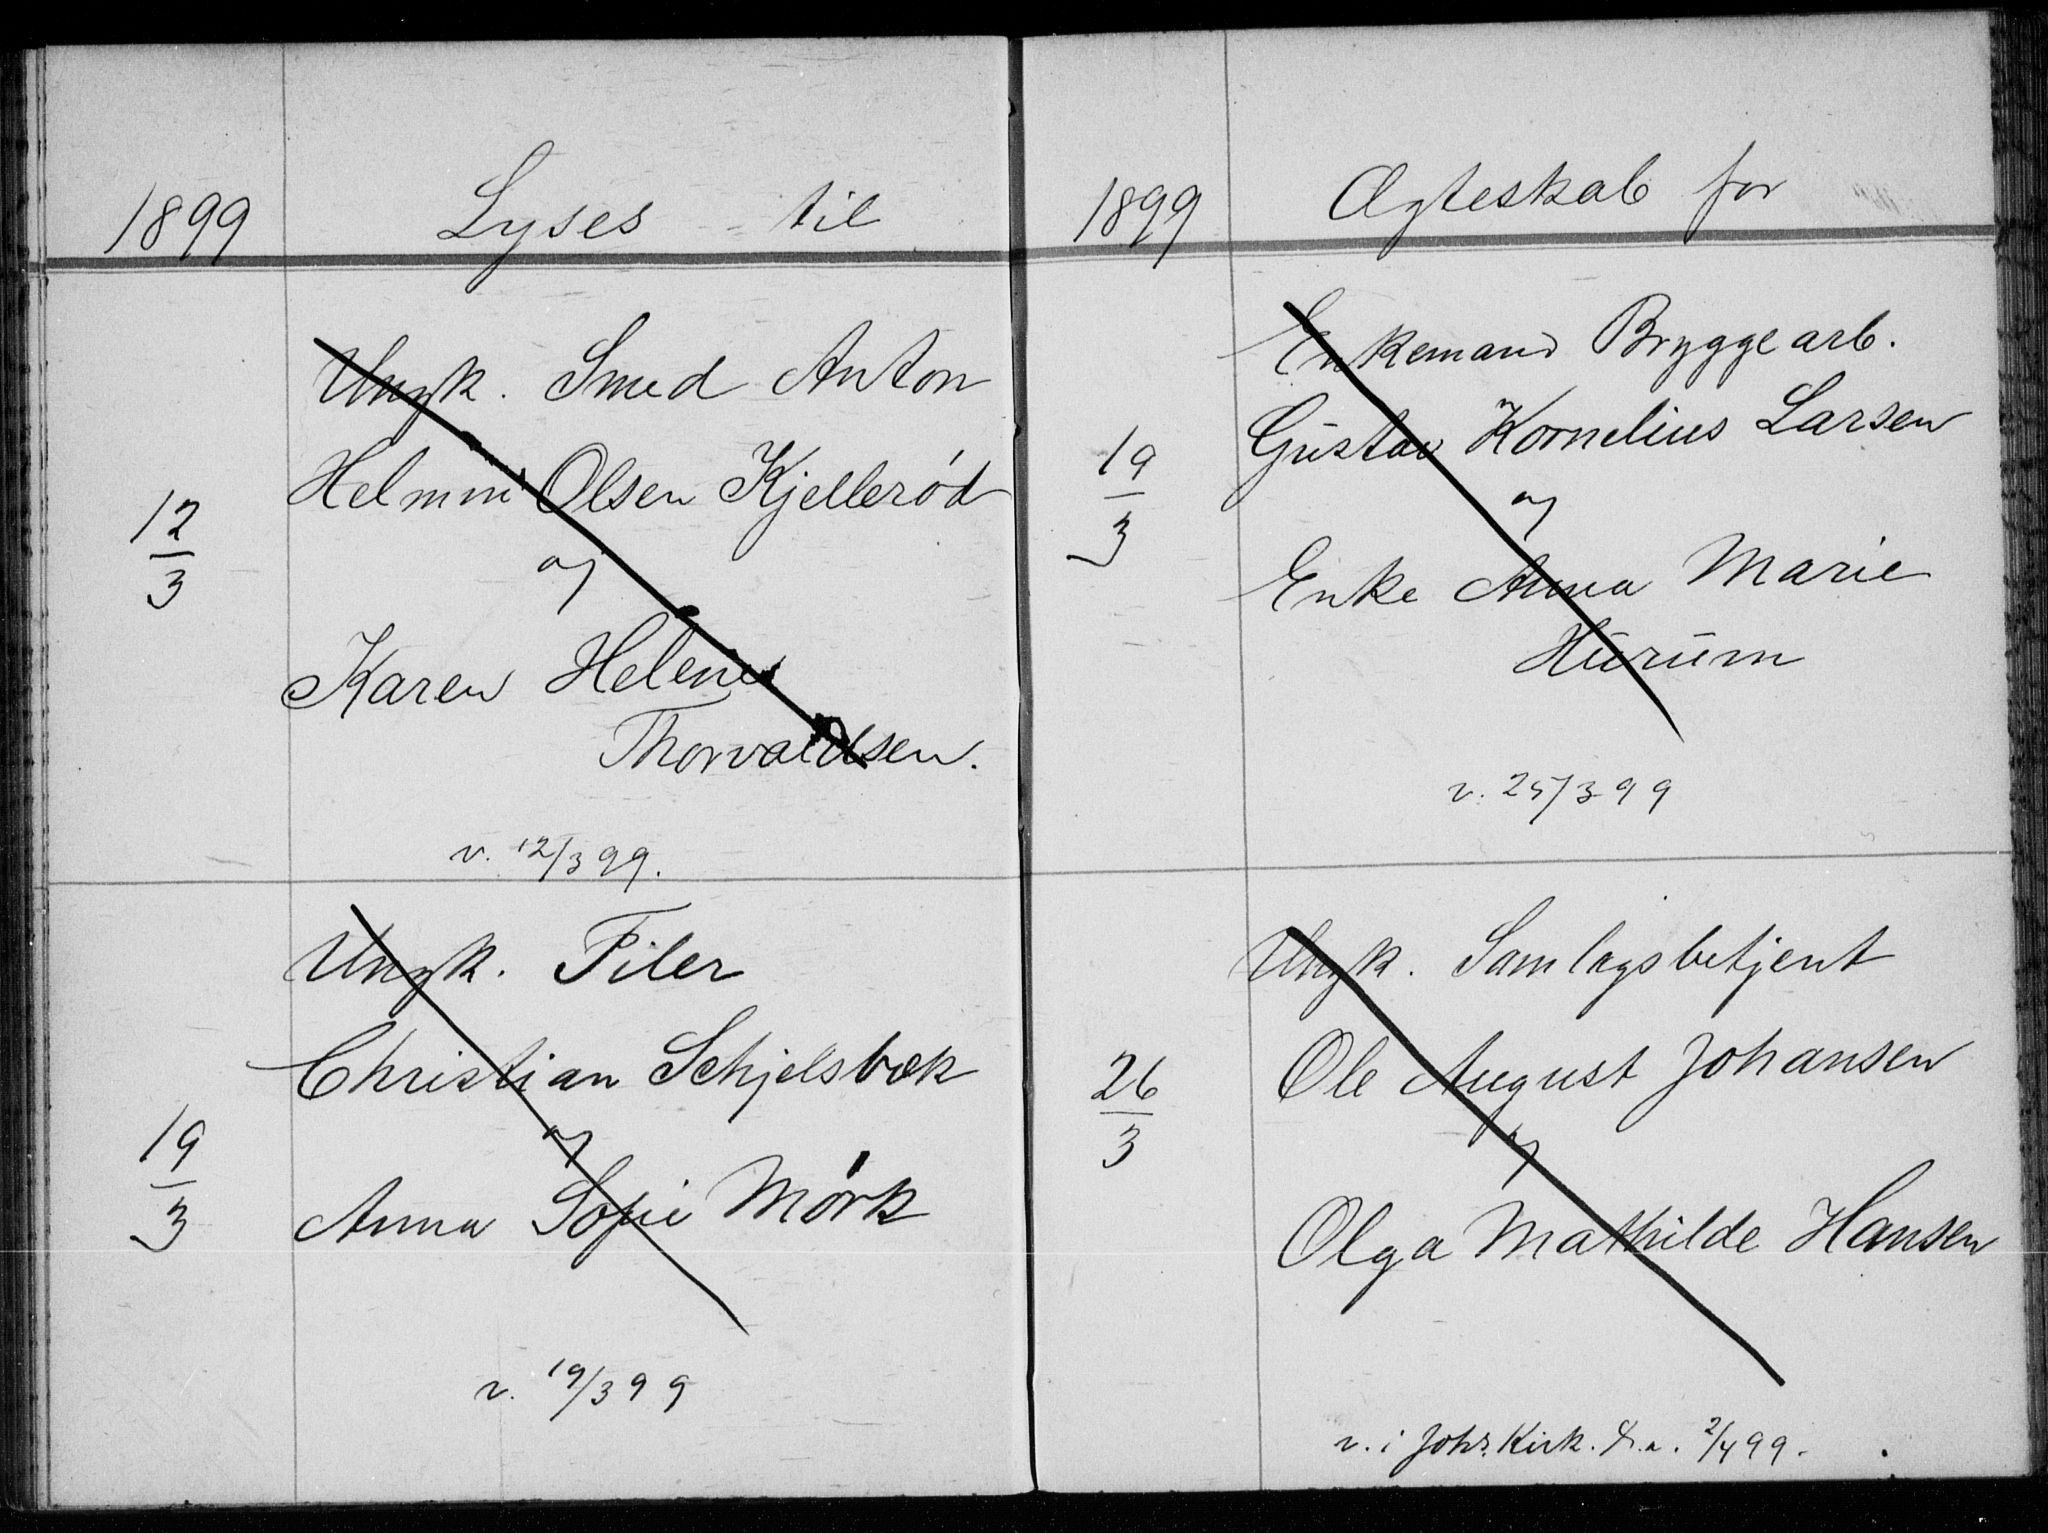 1899 Lyses til
12/3
Ungk. Smed Anton
Helmin Olsen Kjellerød
og
Karen Helene
Thorvaldsen.
v. 12/3 99.
19/3
Ungk. Filer
Christian Schjelsbæk
og
Anna Sofie Mørk
v. 19/3 99
1899 Ægteskab for
19/3
Enkemand Bryggearb.
Gustav Kornelius Larsen
og
Enke Anna Marie
Hurum
v. 25/3 99
26/3
Ungk. Samlagsbetjent
Ole August Johansen
og
Olga Mathilde Hansen
v. i Joh's Kirk. 2/4 99.